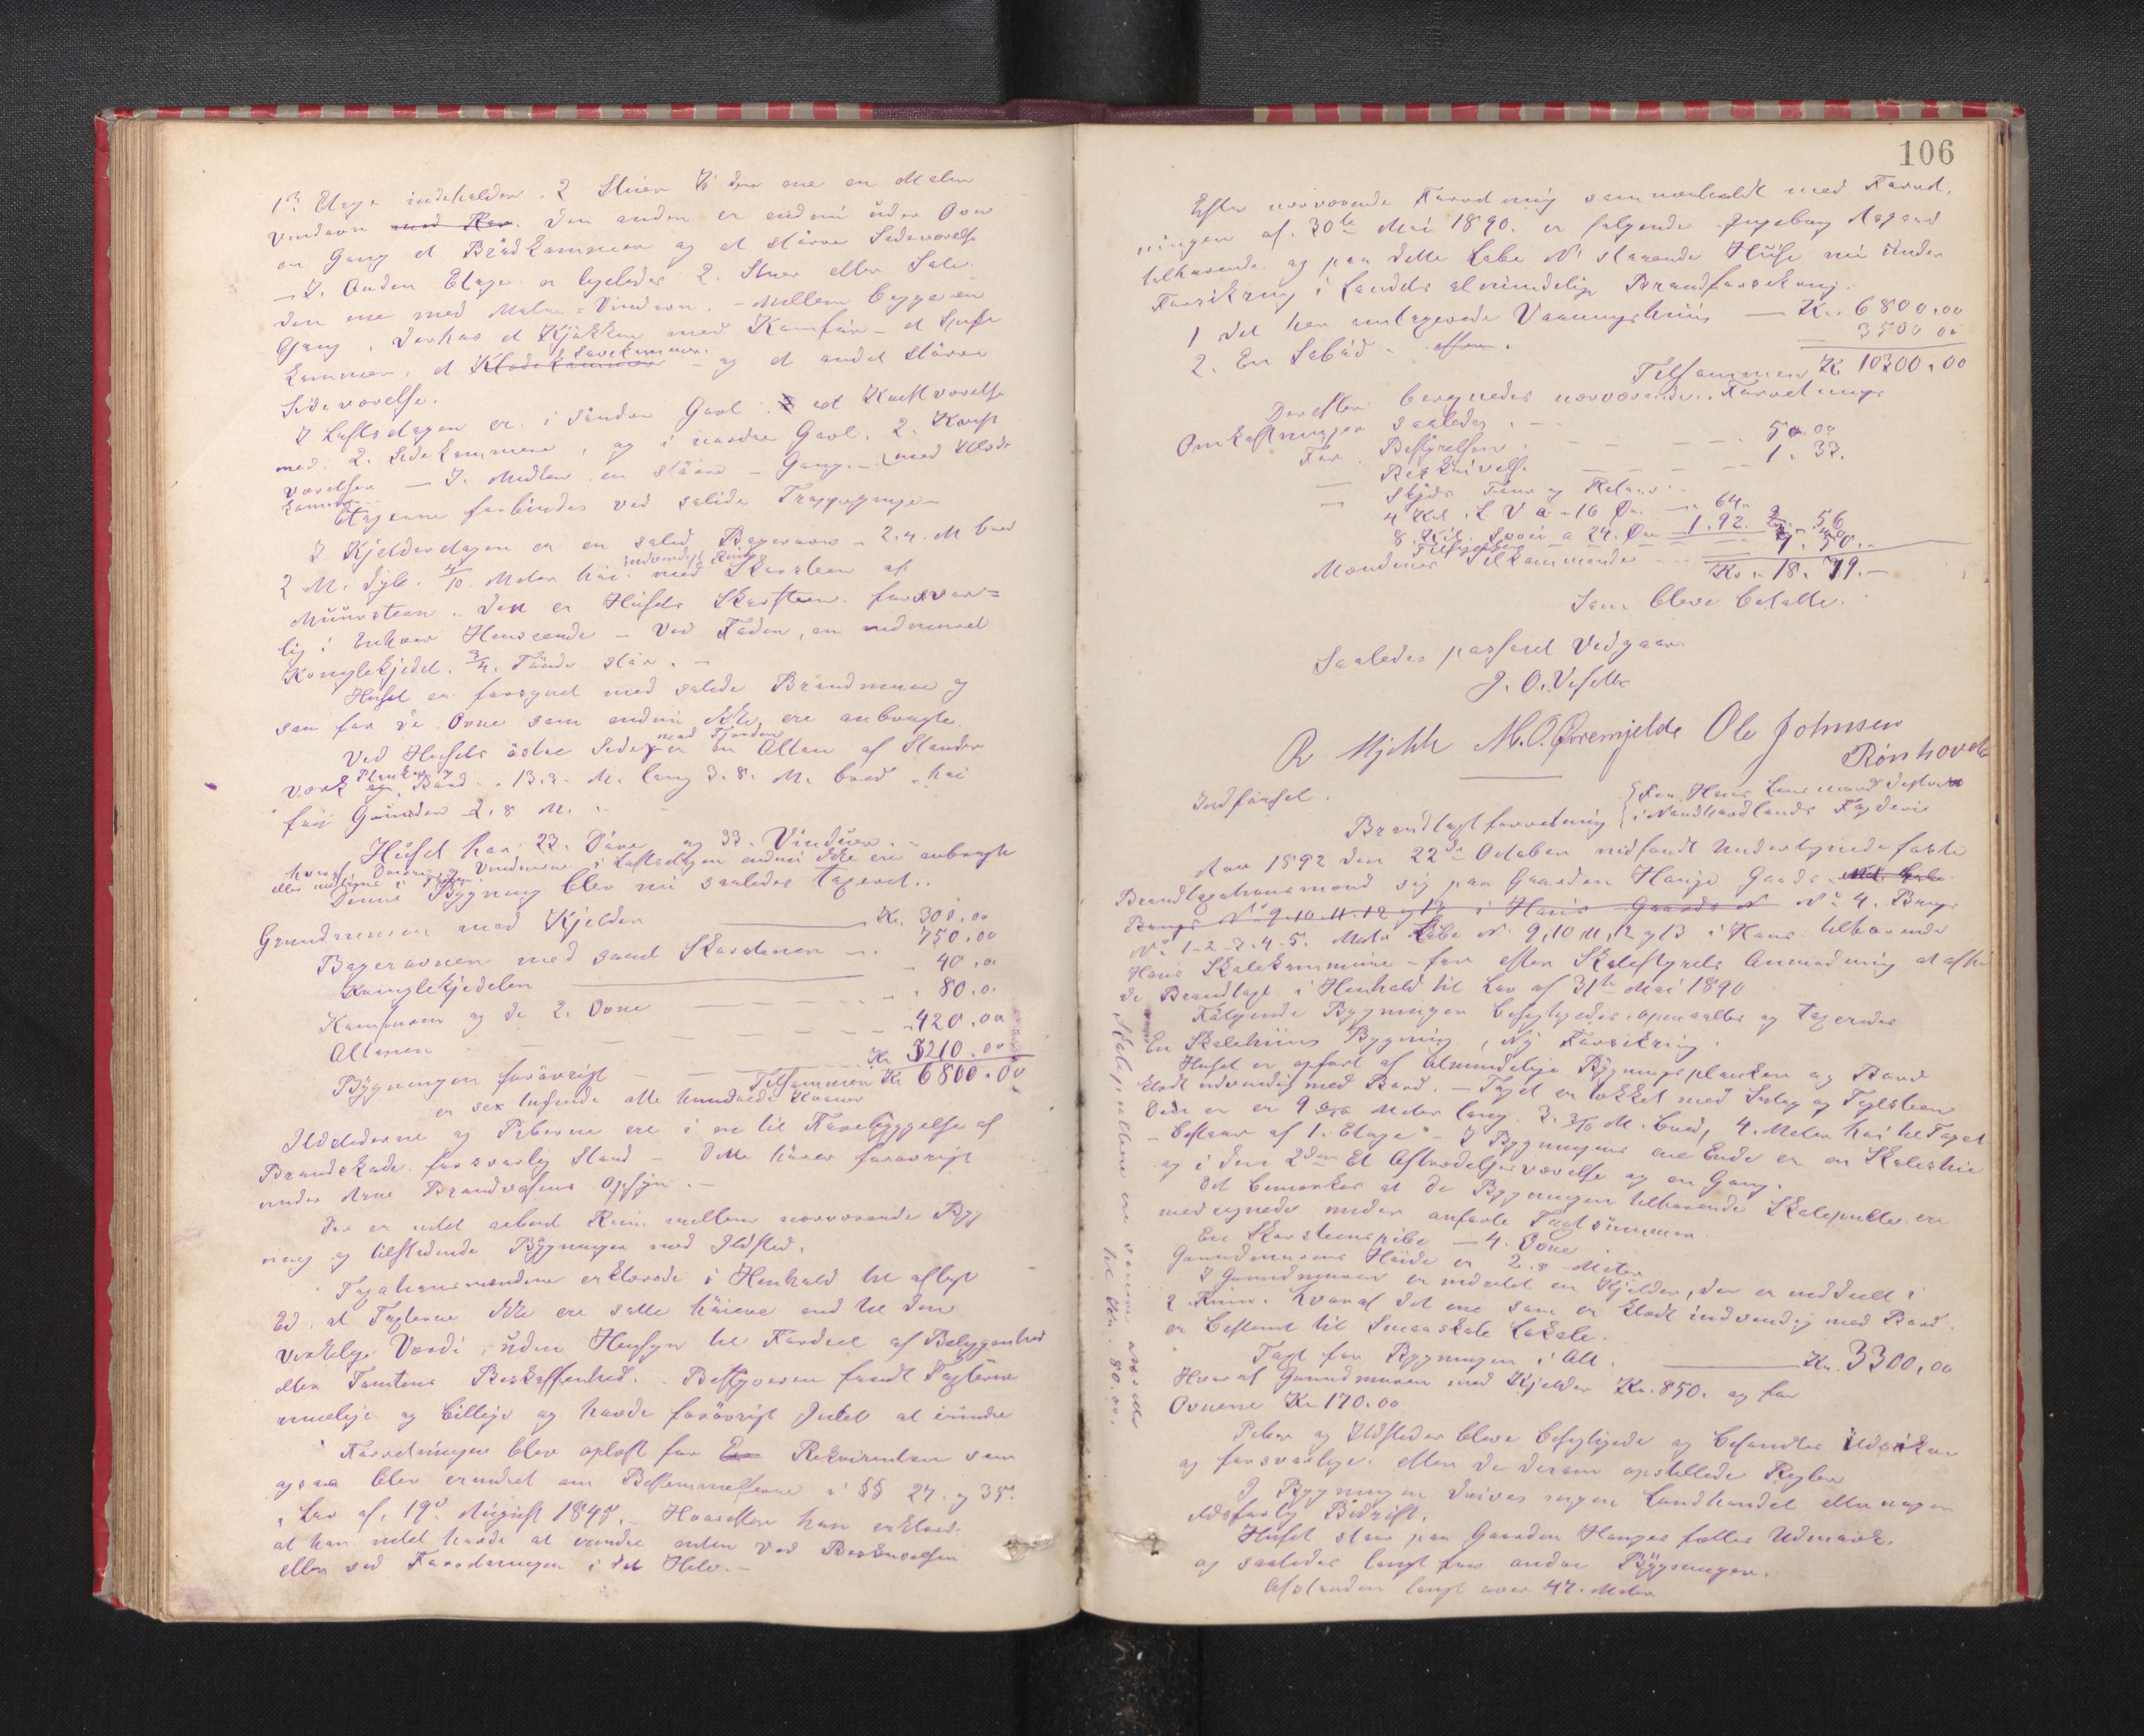 1ste Etage indeholder. 2 Stuer. I den ene en Malm
Vindovn med Rør. Den anden er endnu uden Ovn
en Gang et Brødkammer og et större Sideværelse
— I. Anden Etage er ligeledes 2. Stuer eller Sale.
den ene med Malm = Vindovn. – Mellem begge en
Gang, derhos et Kjøkken med Komfur – et
Kammer, et Klædekammer – og et andet större
Sideværelse.
I Loftsetagen er i söndre Gavl et Kvistværelse
med 2. Sidekammere, og i nordre Gavl. 2. Kvist
værelser — I. Midten en större – Gang. – med Klæde
kammer
Etagerne forbindes ved solide Trappegange –
I Kjelderetagen er en solid Bagerovn – 2.4. M bred
2 M. Dyb. 4/10 Meter höi. indvendigt med Skorsteen af
Muursteen. Den er Husets Skorsteen forsvar=
lig i Enhver Henseende – Ved Siden, en nedmuret
Konglekjedel. 3/4 Tönde stor. –
Huset er forsynet med solide Brandmure og
saa for de Ovne som endnu ikke ere anbragte.
Ved Husets östre Side mod Fjorden er en Altan af Stender
værk Planker og Bord. 13.2. M. lang 3.8. M. bred – höi
fra Grunden 2.8 M. –
Huset har 23. Döre og 33. Vinduer. –
hvoraf Dörene og Vinduerne i Loftsetagen endnu ikke ere anbragte
Denne Bygning blev nu saaledes taxeret..
Grundmuren med Kjelder — Kr. 300.00
Bagerovnen med samt Skorstenen – 750.00
Konglekjedelen — 40.00
Komfuren og de 2. Ovne — 80.0
Altanen — 420.00
Bygningen forövrigt — Kr 5210.00
Tilsammen Kr 6800.00
er sex tusende otte hundrede Kroner
Ildstederne og Piberne ere i en til Forebyggelse af
Brandskade forsvarlig Stand – Dette hörer forövrigt
under Brandvæsens Opsyn. –
Der er intet aabent Rum mellem nærværende Byg
ning og tilstödende Bygninger med Ildsted.
Taxationsmændene erklærede i Henhold til aflagt
Ed, at Taxterne ikke ere satte höiere end til den
virkelige Værdi, uden Hensyn til Fordeel af Beliggenhed
eller Tomtens Beskaffenhed. – Bestyreren fandt Taxterne
rimelige og billige og havde forövrigt Intet at erindre
Forretningen blev oplæst for Rekvirenten som
ogsaa blev erindret om Bestemmelserne i §§ 27. og 35.
i Lov af 19de August 1845. – Hvorefter han erklæred
at han intet havde at erindre enten ved Beskrivelsen
eller ved Forretningen i det Hele. –
106
Efter nærværende Forretning sammenholdt med Forret,
ningen af 30te Mai 1890 er fölgende Ingeborg Aagaard
tilhörende og paa dette Löbe No staaende Huse nu under
Forsikring i Landets almindelige Brandforsikring.
1 Det her omtaxerede Vaaningshuus — Kr. 6800.00
2. En Söbod – — 3500 00
Tilsammen Kr 10300.00
Derefter beregnedes nærværende Forretnings
Omkostninger saaledes. –
For Bestyrelsen — 5.00
— Beskrivelse — 1.33.
— Skyds Frem og Retour –
4 Kil. L V a 16 Öre – 64
8 Kil. Svei a 24. Öre 1.92. 2.56
Mændenes Tilkommende –
Kr. 18.79. –
Som bleve betalte.
Saaledes passeret Vidgaar
J. O. Veseth
R Mjelde M. O. Øvremjelde Ole Johnsen
Rönhovde
Indförsel.
Brandtaxtforretning { for Haus Lensmandsdistrikt
i Nordhordlands Fogderi
Aar 1892 den 22de October indfandt Undertegnede faste
Brandtaxationsmænd sig paa Gaarden Hauge Gaards
No 4. Brugs
No 1-2-3-4-5. Matr Löbe No 9,10,11,12 og 13 i Haus. tilhörende
Haus Skolekommune – for efter Skolestyrets Anmodning at afhol
de Brandtaxt i Henhold til Lov af 31te Mai 1890
Fölgende Bygninger besigtigedes, opmaaltes og taxeredes
En Skolehuus Bygning, Ny Forsikring.
Huset er opfört af almindelige Bygningsplanker og Bord
klædt udvendig med Bord. – Taget er tækket med Sutag og Taglsteen
Dets er 9 Meter lang 7. 3/10 M. bred, 4. Meter höi til Taget
– bestaar af 1. Etage – I Bygningens ene Ende er en Skolestue
og i den 2den Et Afkrædelsesværelse og en Gang.
Det bemærkes at de Bygningen tilhörende Skolepulte ere
medregnede under anförte Taxtsummer
En Skorsteenspibe – 4. Döre
Grundmurens Höide er 2.8 Meter
I Grundmuren er indredet en Kjelder, der er inddeelt i
2 Rum. hvoraf det ene som er klædt indvendig med Bord
er bestemt til Smaaskole Lokale.
Taxt for Bygningen i Alt. — Kr. 3300,00
Hvoraf Grundmuren med Kjelder Kr. 850. og for
Ovnene Kr 170.00
Piber og Ildsteder bleve besigtigede og befandtes ildsikre
og forsvarlige. efter de derom opstillede Regler
I Bygningen drives ingen Landhandel eller nogen
ildsfarlig Bedrift.
Huset staar paa Gaarden Hauges fælles Udmark.
og saaledes langt fra andre Bygninger.
Afstanden langt over 47. Meter
Skolepultene ere ansatte til Kr. 80.00.